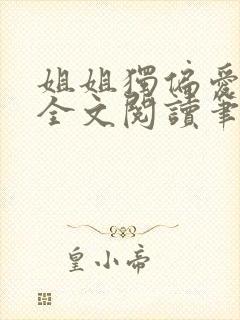 姐姐獨偏愛
全文閱讀筆
皇小帝